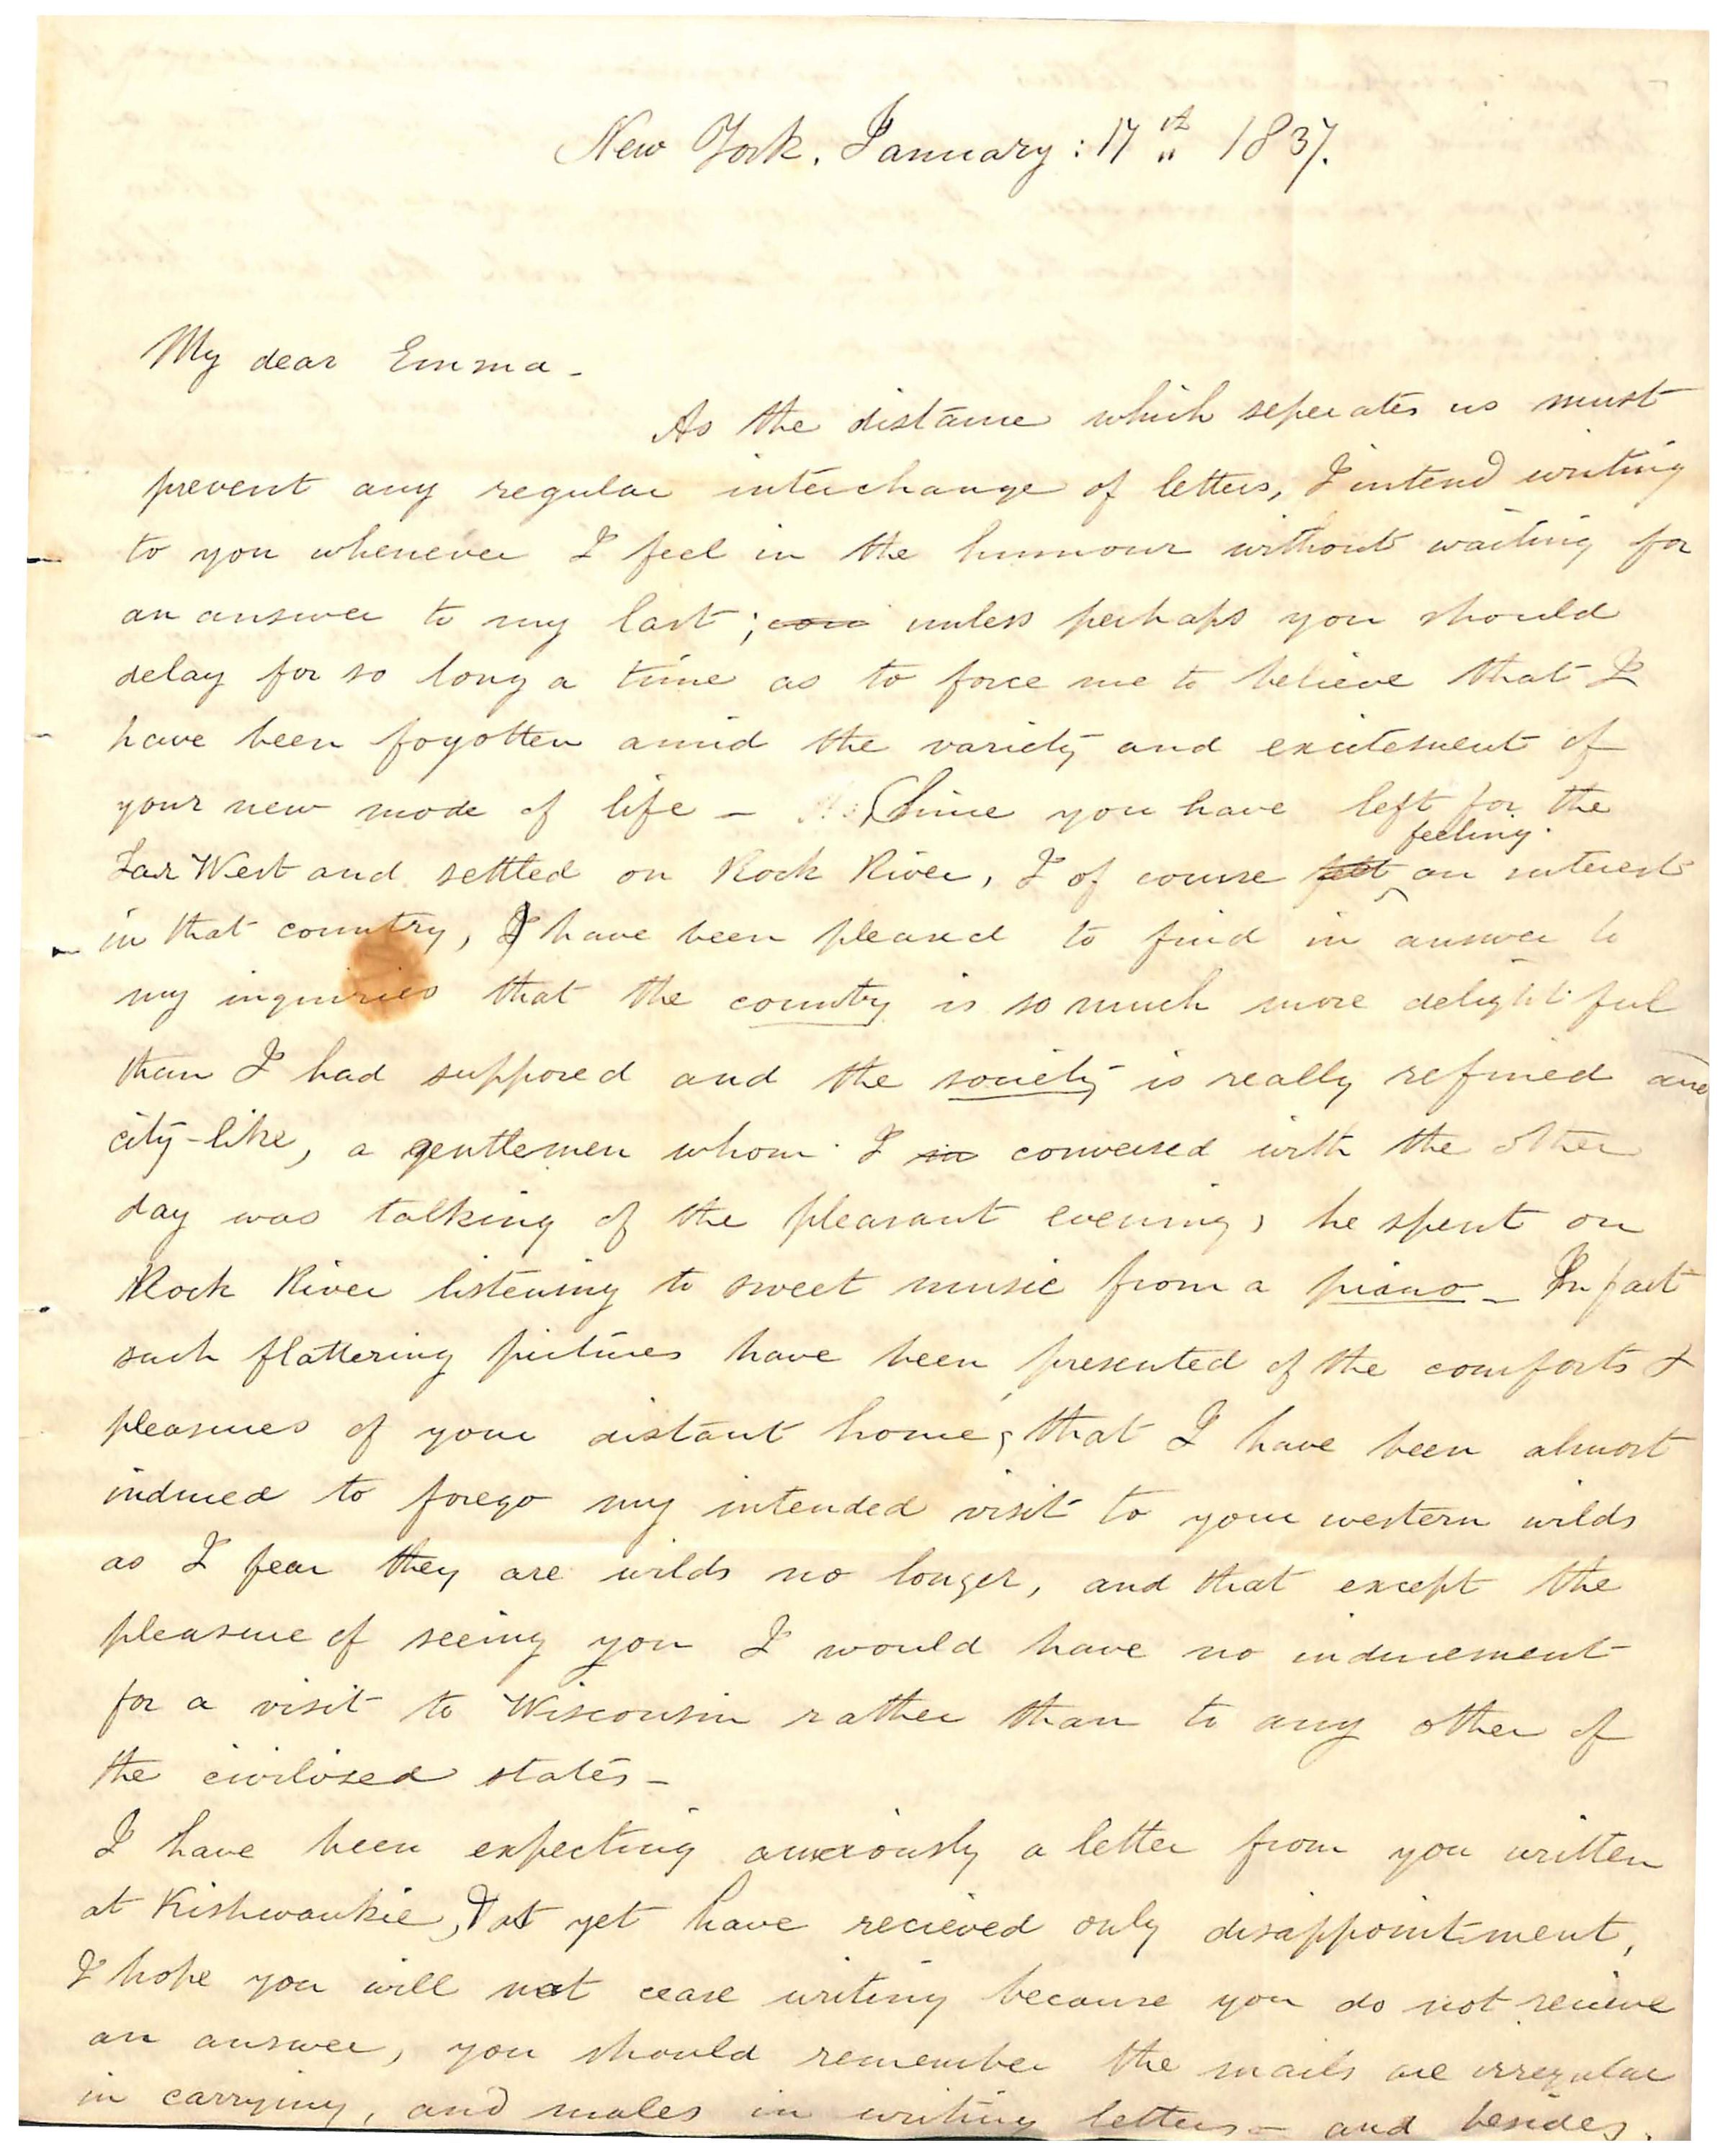 New York. January: 17th 1837.
My dear Emma -
As the distance which seperates us must
prevent any regular interchange of letters, I intend writing
to you whenever I feel in the humour without waiting for
an answer to my last; unless perhaps you should
delay for so long a time as to force me to believe that I
have been fogotten amid the variety and excitement of
your new mode of life - Since you have left for the
feeling
Far West and settled on Rock River, I of course felt an interest
in that country, I have been pleased to find in answer to
my inquiries that the country is so much more delightful
than I had supposed and the society is really refined and
city-like, a gentlemen whom I in conversed with the other
day was talking of the pleasant evenings he spent on
Rock River listening to sweet music from a piano - In fact
such flattering pictures have been presented of the comforts &
pleasures of your distant home, that I have been almost
induced to forego my intended visit to your western wilds
as I fear they are wilds no longer, and that except the
pleasure of seeing you I would have no inducement
for a visit to Wisconsin rather than to any other of
the civilised states -
I have been expecting anxiously a letter from you written
at Kishwaukie, I as yet have recieved only disappointment,
I hope you will not cease writing because you do not recieve
an answer, you should remember the mails are irregular
in carrying, and males in writing letters - and besides,